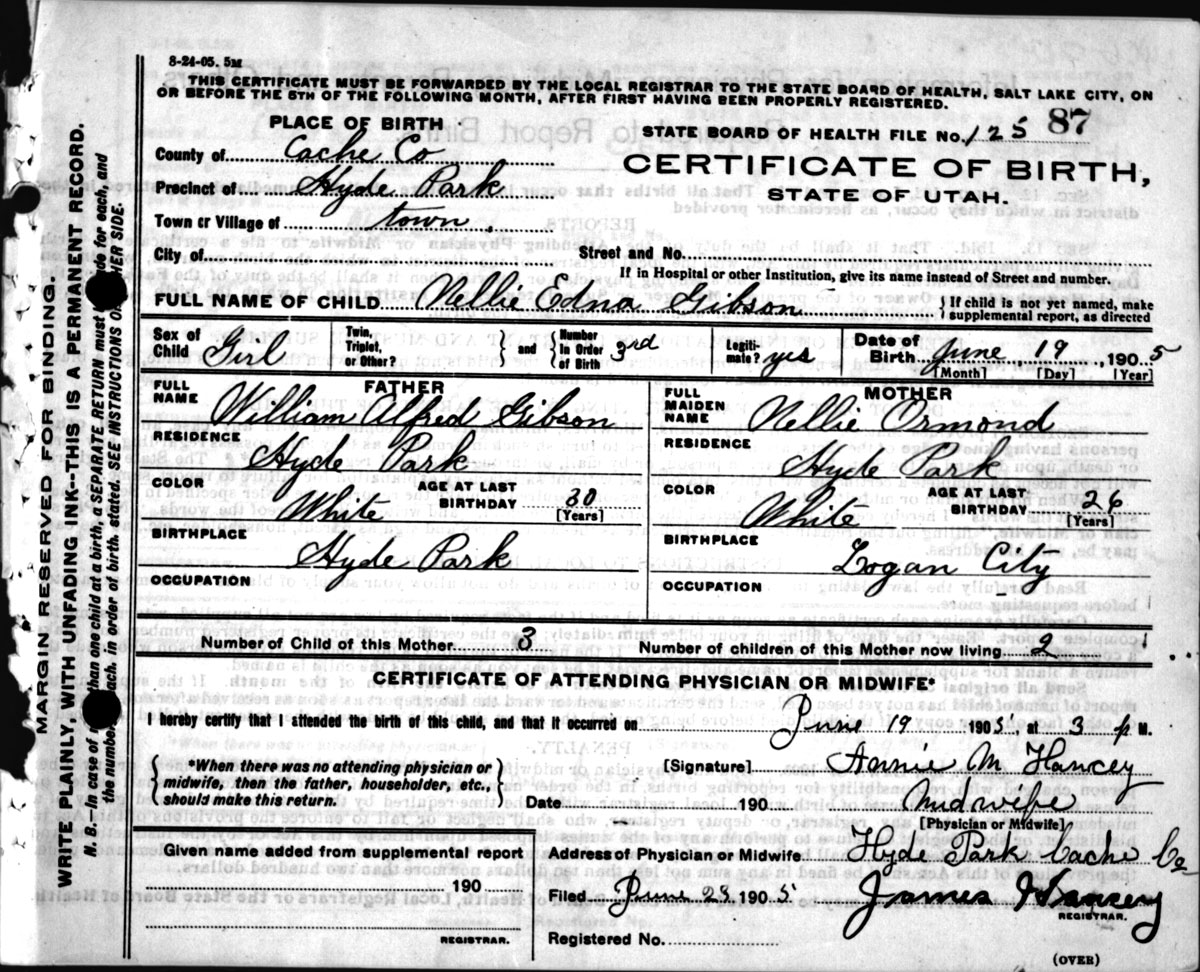 8-24-05. 5M
THIS CERTIFICATE MUST BE FORWARDED BY THE LOCAL REGISTRAR TO THE STATE BOARD OF HEALTH, SALT LAKE CITY, ON
OR BEFORE THE 5TH OF THE FOLLOWING MONTH, AFTER FIRST HAVING BEEN PROPERLY REGISTERED.
PLACE OF BIRTH
STATE BOARD OF HEALTH FILE No. 125 87
County of Cache Co
CERTIFICATE OF BIRTH,
Precinct of Hyde Park
STATE OF UTAH.
Town or Village of town
City of Street and No.
If in Hospital or other Institution, give its name instead of Street and number.
FULL NAME OF CHILD Nellie Edna Gibson { If child is not yet named, make
supplemental report, as directed
Sex of Child Girl
Twin, Triplet, or Other? } and { Number in Order of Birth 3rd
Legiti-mate? yes
Date of Birth June 19 1905
[Month] [Day] [Year]
FATHER
FULL NAME William Alfred Gibson
MOTHER
FULL MAIDEN NAME Nellie Ormond
RESIDENCE Hyde Park
RESIDENCE Hyde Park
COLOR White AGE AT LAST BIRTHDAY 30 [Years]
COLOR White AGE AT LAST BIRTHDAY 26 [Years]
BIRTHPLACE Hyde Park
BIRTHPLACE Logan City
OCCUPATION
OCCUPATION
Number of Child of this Mother 3 Number of children of this Mother now living 2
CERTIFICATE OF ATTENDING PHYSICIAN OR MIDWIFE*
I hereby certify that I attended the birth of this child, and that it occurred on June 19 1905, at 3 p M.
{ *When there was no attending physician or
midwife, then the father, householder, etc.,
should make this return. }
[Signature] Annie M Hancey
Date 190 Midwife
[Physician or Midwife]
Given name added from supplemental report
190
REGISTRAR.
Address of Physician or Midwife Hyde Park Cache Co
Filed June 29 1905 James Hancey
REGISTRAR.
Registered No.
(OVER)
MARGIN RESERVED FOR BINDING.
WRITE PLAINLY, WITH UNFADING INK--THIS IS A PERMANENT RECORD.
N. B.--In case of more than one child at a birth, a SEPARATE RETURN must be made for each, and
the number of each, in order of birth, stated. SEE INSTRUCTIONS ON OTHER SIDE.